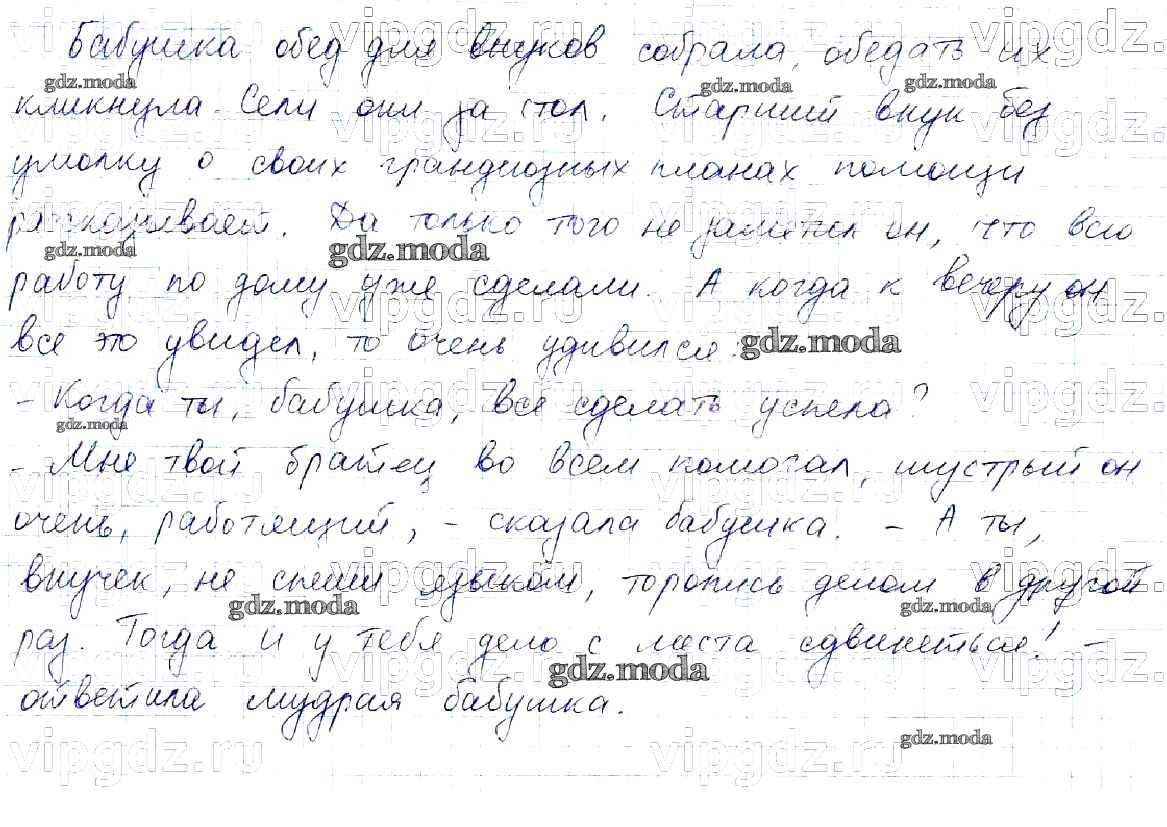 Бабушка обед для внуков собрала, обедать их
кликнула. Сели они за стол. Старший внук без
умолку о своих грандиозных планах помощи
рассказывает. Да только того не заметил он, что всю
работу по дому уже сделали. А когда к вечеру он
все это увидел, то очень удивился:
- Когда ты, бабушка, все сделать успела?
- Мне твой братец во всем помогал, шустрый он
очень, работящий, - сказала бабушка. - А ты,
внучек, не спеши языком, торопись делом в другой
раз. Тогда и у тебя дело с места сдвинеться! -
ответила мудрая бабушка.
vipgdz.ru
gdz.moda